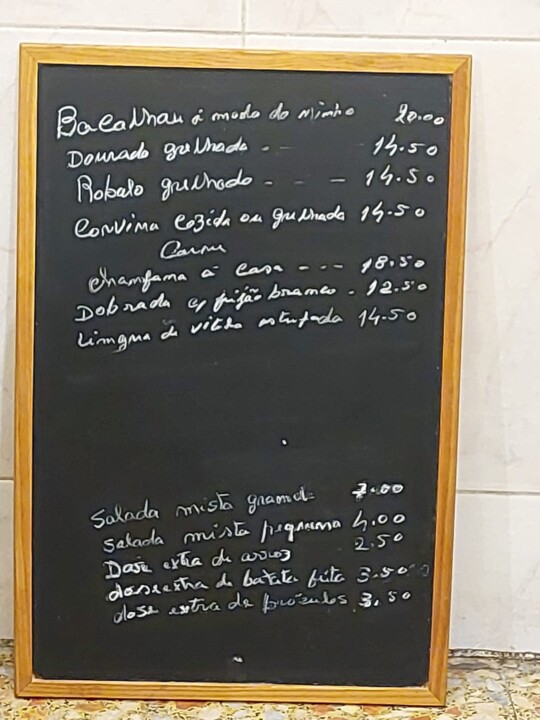 Bacalhau á moda do Minho 20.00
Dourado grelhado - - 14.50
Robalo grelhado - - - 14.50
Corvina cozida ou grelhada 14.50
Carne
chamfana á casa - - - 18.50
Dobrada c/ feijão branco - 12.50
Limgua de vitela estufada 14.50
Salada mista grande 7.00
Salada mista pequena 4.00
Dose extra de arroz 2.50
dose extra de batata frita 3.50
dose extra de brócolos 3.50